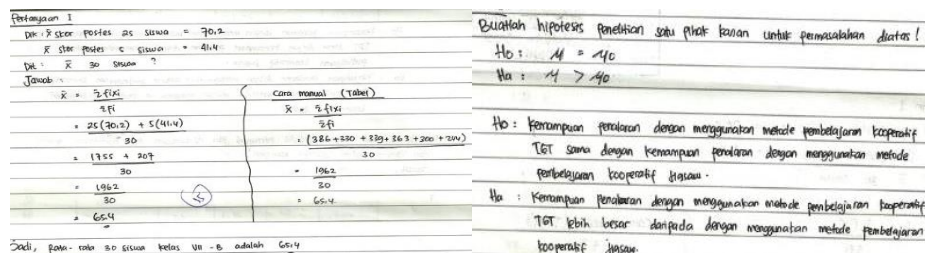 Pertanyaan I
Dik : x̄ skor postes 25 siswa = 70,2
x̄ skor postes 5 siswa = 41,4
Dit : x̄ 30 siswa ?
Jawab :
x̄ = Σfixi
Σfi
= 25(70,2) + 5(41,4)
30
= 1755 + 207
30
= 1962
30
= 65,4
Cara manual (Tabel)
x̄ = Σfixi
Σfi
= (386+330+339+363+300+244)
30
= 1962
30
= 65,4
Jadi, Rata-rata 30 siswa kelas VII-B adalah 65,4
Buatlah hipotesis penelitian satu pihak kanan untuk permasalahan diatas !
Ho : μ = μo
Ha : μ > μo
Ho : Kemampuan penalaran dengan menggunakan metode pembelajaran kooperatif
TGT sama dengan kemampuan penalaran dengan menggunakan metode
pembelajaran kooperatif Jigsaw.
Ha : Kemampuan Penalaran dengan menggunakan metode pembelajaran kooperatif
TGT lebih besar daripada dengan menggunakan metode pembelajaran
kooperatif Jigsaw.